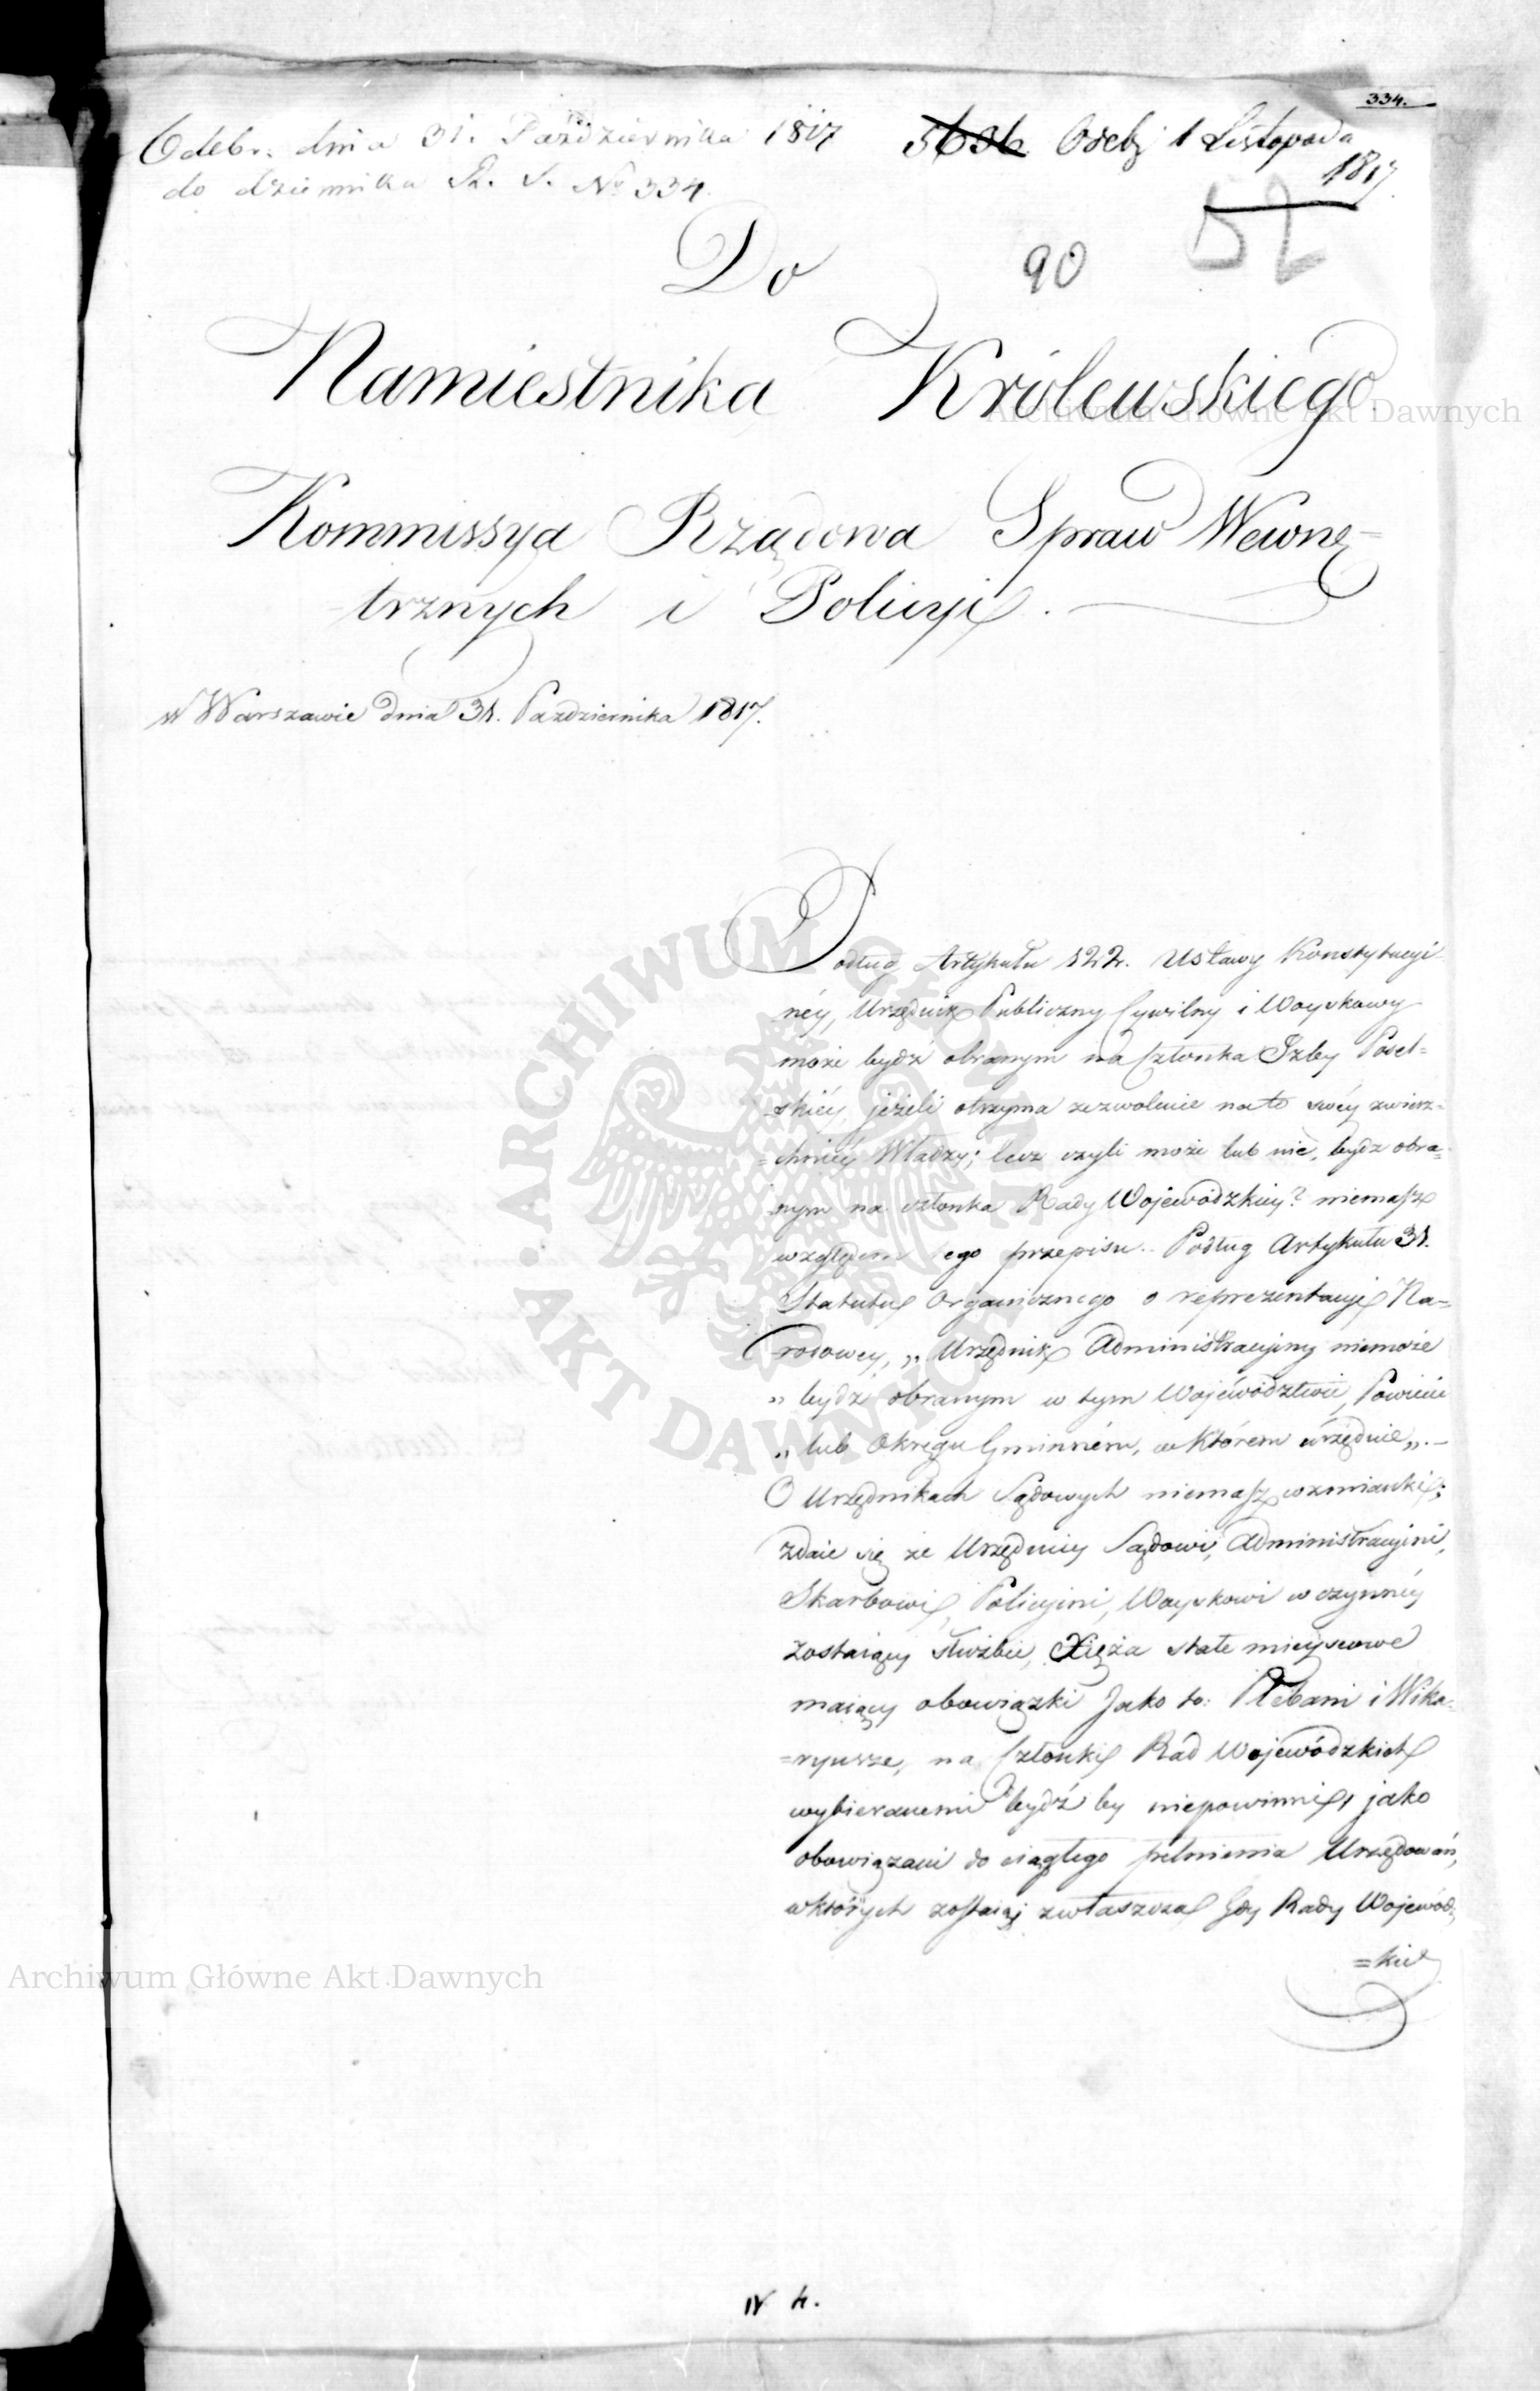 334.
Odebr. dnia 31. Października 1817
do dziennika R. S. No 334.
5636 Odeb; 1 Listopada
1817
52
Do
90
Namiestnika Królewskiego.
Kommissya Rządowa Spraw Wewnę-
trznych i Policyi.
w Warszawie dnia 31. Października 1817.
Podług Artykułu 122. Ustawy Konstytucyi
néy, Urzędnik Publiczny Cywilny i Woyskowy
może bydź obranym na Członka Izby Posel=
skiéy, jeżeli otrzyma zezwolenie nato swéy zwierz=
=chniéy Władzy; lecz czyli może lub nie, bydz obra=
nym na członka Rady Wojewódzkiey? niemasz
względem tego przepisu. Podług Artykułu 31.
Statutu Organicznego o reprezentacyi Na=
rodowey, „Urzędnik Administracyiny niemoże
„ bydź obranym w tym Województwie, Powiecie
„ lub Okręgu Gminném, w którem urzęduie„. –
O Urzędnikach Sądowych niemasz wzmianki;
zdaie się że Urzędnicy Sądowi, Administracyini,
Skarbowi, Policyini, Woyskowi w czynnéy
zostaiący służbie, Xięża stałe mieyscowe
maiący obowiązki Jako to: Plebani i Wika-
=ryusze, na Członki Rad Wojewódzkich
wybieranemi bydź by niepowinni, jako
obowiązani do ciągłego pełnienia Urzędowań,
w których zostaią; zwłaszcza Gdy Rady Wojewódz
=kie
IV 4.
ARCHIWUM GŁÓWNE AKT DAWNYCH
Archiwum Główne Akt Dawnych
Archiwum Główne Akt Dawnych